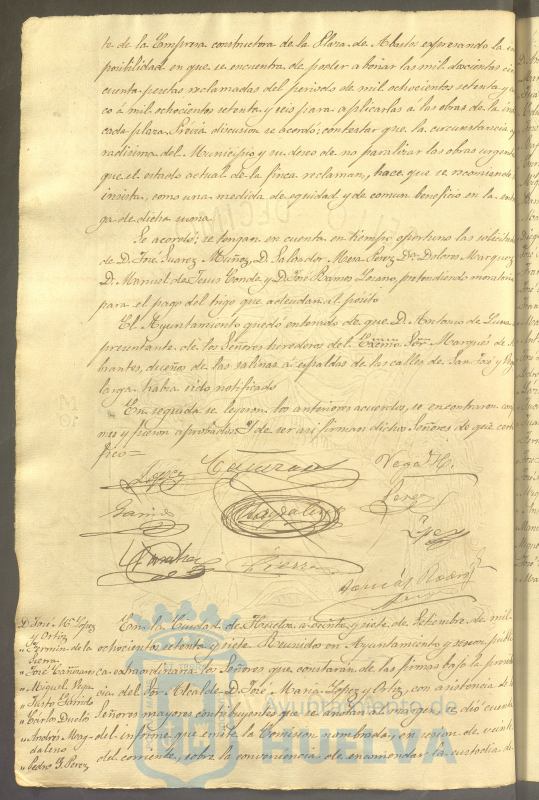 te de la Empresa constructora de la Plaza de Abastos expresando la im
posibilidad en que se encuentra de poder abonar las mil doscientas cin
cuenta pesetas reclamadas del periodo de mil ochocientos setenta y
co á mil ochocientos setenta y seis para aplicarlas a las obras de la in
cada plaza. Prévia discusion se acordó: contestar que la circunstancia
radísima del Municipio y su deseo de no paralizar las obras urgent
que el estado actual de la finca reclaman, hace que se recomiende
insista, como una medida de equidad y de comun beneficio en la entre
ga de dicha suma.
Se acordó: se tengan en cuenta en tiempo oportuno las solicitudes
de D. José Suarez Muñoz, D. Salvador Mesa Perez, Dª Dolores Marquez
D. Manuel de Jesus Conde y D. José Ramos Lozano, pretendiendo moratoria
para el pago del trigo que adeudan al posito
El Ayuntamiento quedó enterado de que D. Antonio de Luna
presentante de los Señores herederos del Excmo. Señr. Marqués de
brantes, dueños de las salinas á espaldas de las calles de San José y Ve
larga habia sido notificado
En seguida se leyeron los anteriores acuerdos, se encontraron confor
mes y fueron aprobados. Y de ser asi firman dichos Señores de que certi
fico=
Lopez Cañizares Vega M.
Garrido Magdaleno Perez
Sanchez
Tomás Rodrigz
D. José Mª Lopez
y Ortiz
" Fermin de la
Sierra
" José Cañizares
" Miguel Vega
" Justo Garrido
" Carlos Duclos
" Andrés Mag-
daleno
" Pedro G. Perez
En la Ciudad de Huelva a veinte y siete de Setiembre de mil
ochocientos setenta y siete. Reunidos en Ayuntamiento y sesion públi
ca extraordinaria los Señores que constan de las firmas bajo la presiden
cia del Sor. Alcalde D. José Maria Lopez y Ortiz, con asistencia de los
Señores mayores contribuyentes que se anotan al margen se dió cuenta
del informe que emite la Comision nombrada, en sesion de veinte
del corriente, sobre la conveniencia de encomendar la custodia de
Ayuntamiento de
HUELVA